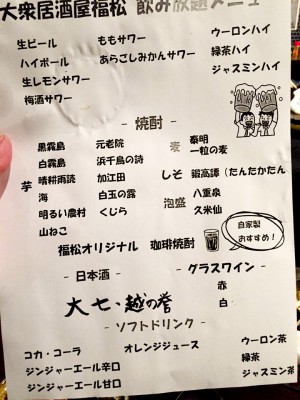 大衆居酒屋福松 飲み放題メニュー
生ビール ももサワー ウーロンハイ
ハイボール あらごしみかんサワー 緑茶ハイ
生レモンサワー ジャスミンハイ
梅酒サワー
- 焼酎 -
黒霧島 元老院 麦 泰明
白霧島 浜千鳥の詩 一粒の麦
芋 晴耕雨読 加江田 しそ 鍛高譚(たんたかたん
海 白玉の露 泡盛 八重泉
明るい農村 くじら 久米仙
山ねこ
福松オリジナル 珈琲焼酎
自家製
おすすめ!
- 日本酒 - - グラスワイン -
大七、越の誉 赤
白
- ソフトドリンク -
コカ・コーラ オレンジジュース ウーロン茶
ジンジャーエール辛口 緑茶
ジンジャーエール甘口 ジャスミン茶